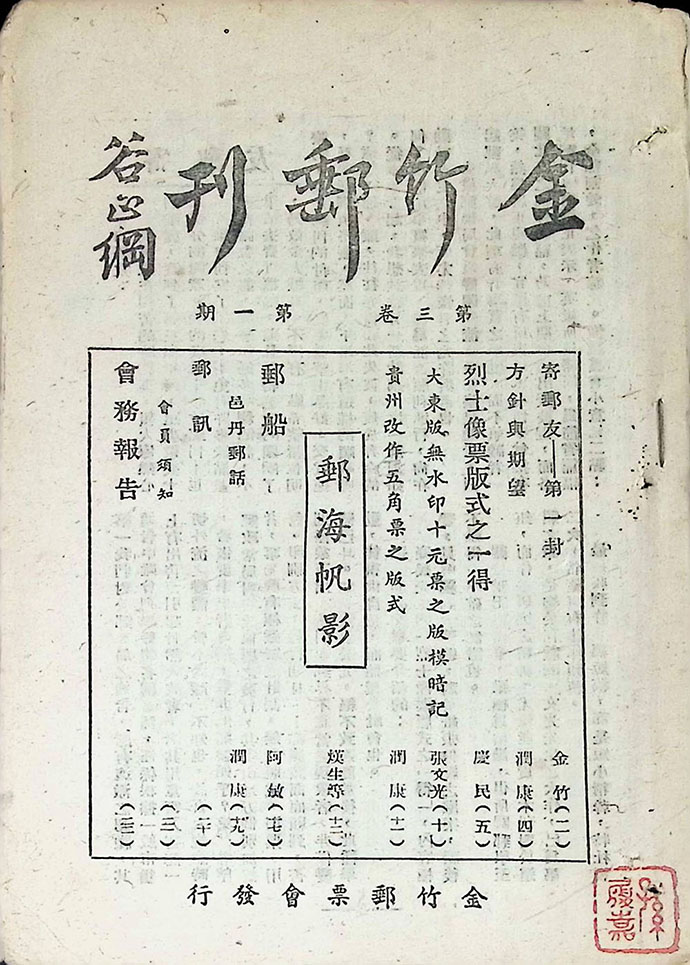 金竹郵刊
谷正綱
第三卷　第一期
寄郵友——第一封　金竹(二)
方針與期望　潤康(四)
烈士像票版式之一得　慶民(五)
大東版無水印十元票之版模暗記　張文光(十)
貴州改作五角票之版式　潤康(十一)
郵海帆影　煐生等(十二)
郵船　阿敏(十七)
邑丹郵話　潤康(十九)
郵訊　(二十)
會員須知　(二一)
會務報告　(二二)
金竹郵票會發行
孫履嘉